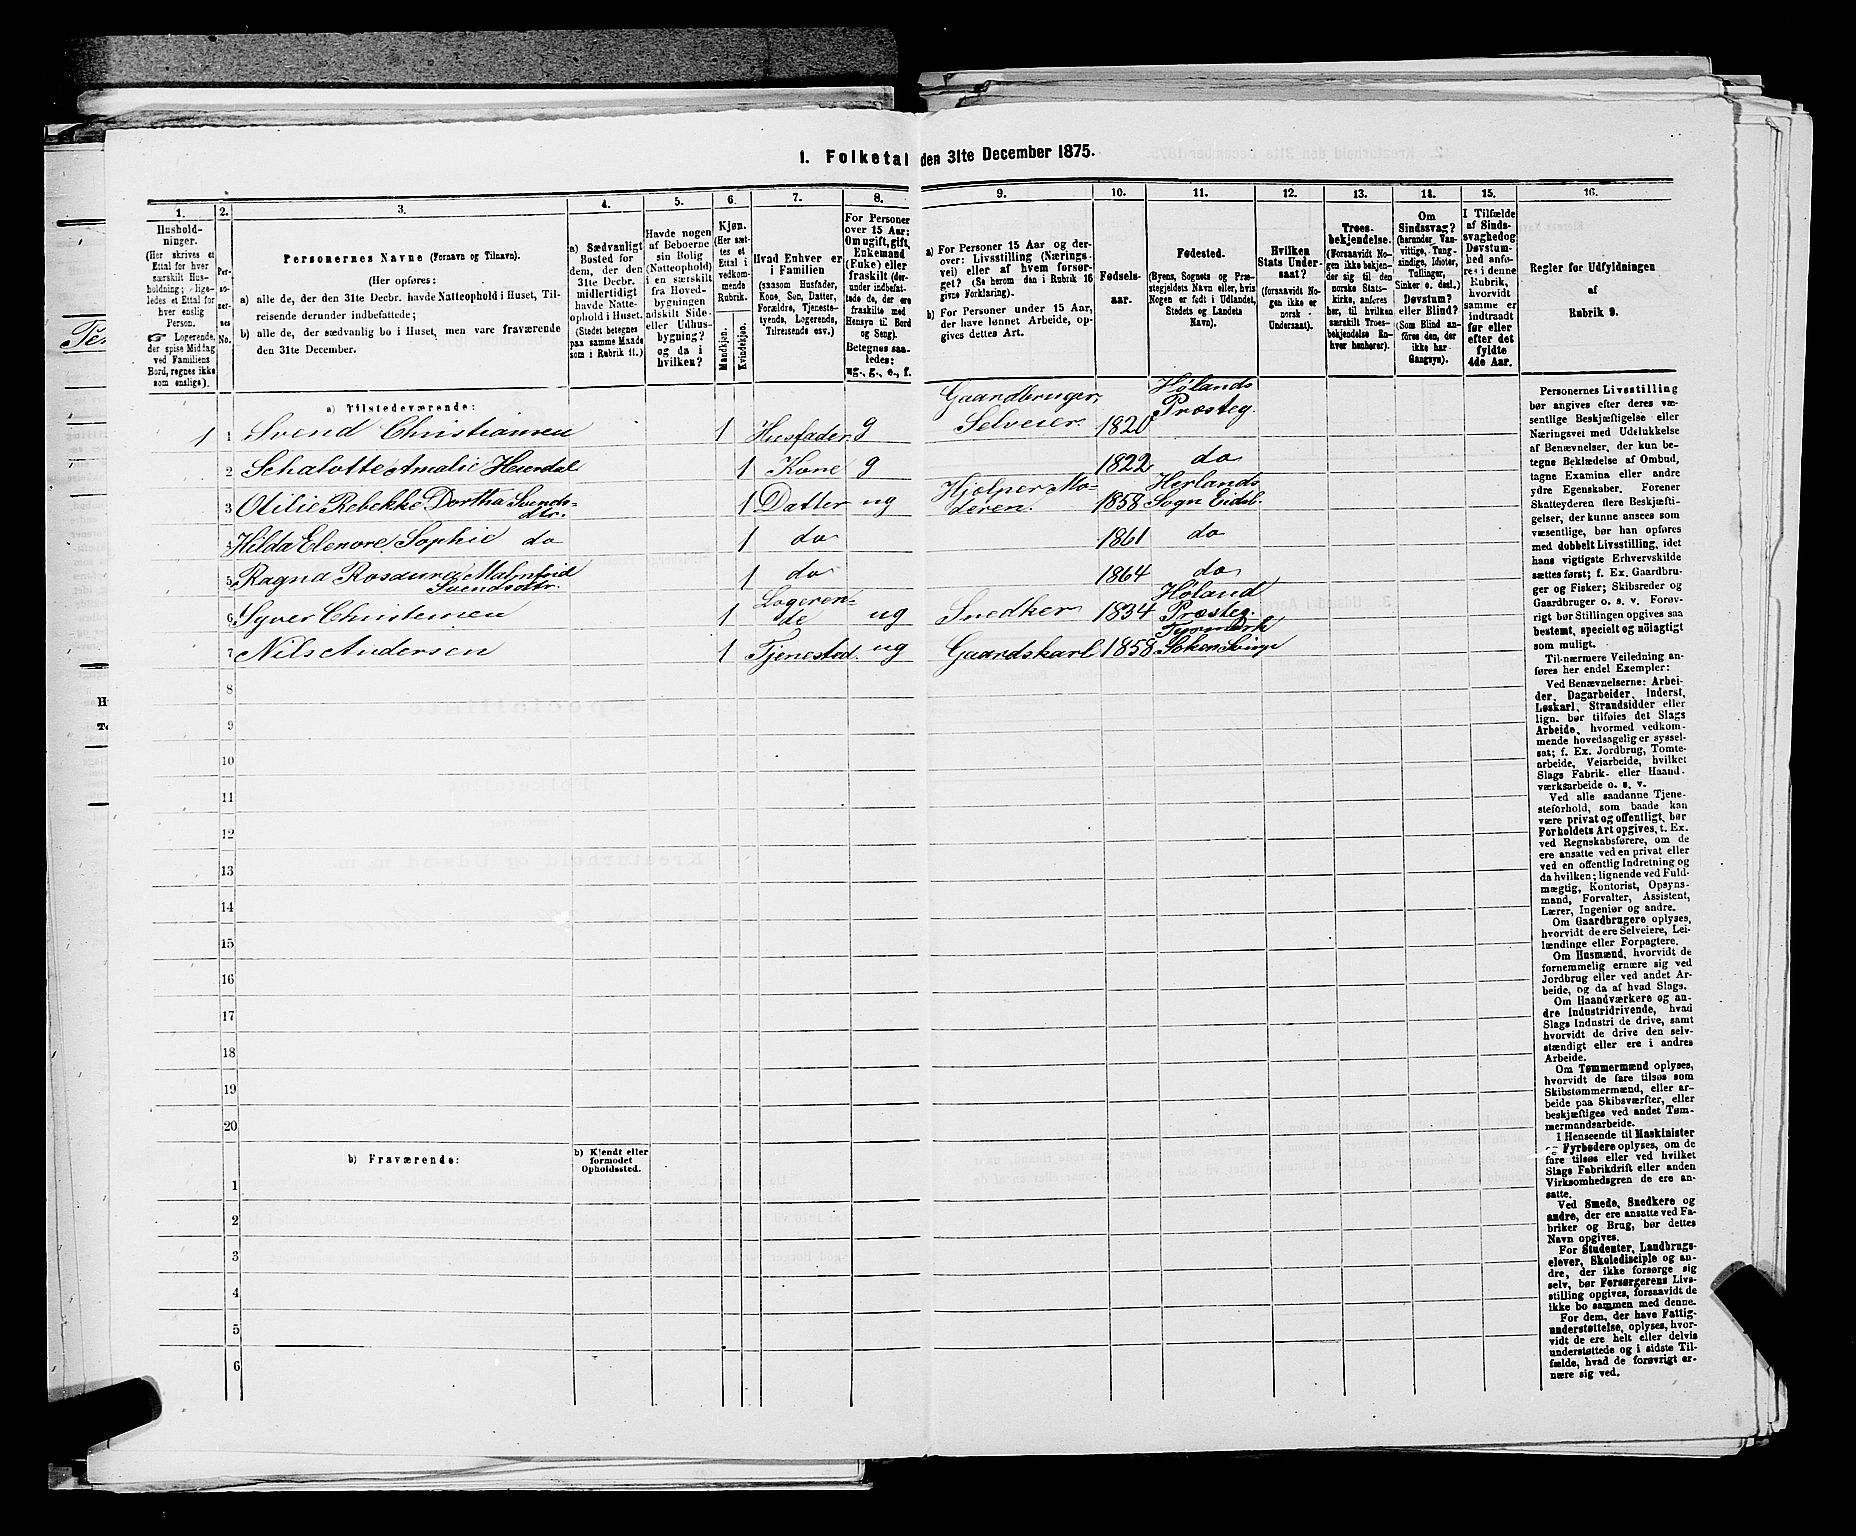 1. Folketal den 31te December 1875.
1.
2.
3.
4.
5.
6.
7.
8.
9.
10.
11.
12.
13.
14.
15.
16.
Husholdninger.
(Her skrives et
Ettal for hver
særskilt Husholdning;
ligeledes
et Ettal for
hver enslig
Person.
☛ Logerende,
der spise Middag
ved Familiens
Bord, regnes ikke
som enslige).
Personernes
No.
Personernes Navne (Fornavn og Tilnavn).
(Her opføres:
a) alle de, der den 31te Decbr. havde Natteophold i Huset, Tilreisende
derunder indbefattede;
b) alle de, der sædvanlig bo i Huset, men vare fraværende
den 31te December.
a) Sædvanligt
Bosted for
dem, der den
31te Decbr.
midlertidigt
havde Natteophold
i Huset.
(Stedet betegnes
paa samme Maade
som i Rubrik 11.)
Havde nogen
af Beboerne
sin Bolig
(Natteophold)
i en særskilt
fra Hovedbygningen
adskilt Side-
eller Udhusbygning?
og da i
hvilken?
Kjøn.
(Her sættes
et
Ettal i
vedkommende
Rubrik.
Mandkjøn.
Kvindekjøn.
Hvad Enhver er
i Familien
(saasom Husfader,
Kone, Søn, Datter,
Forældre, Tjenestetyende,
Logerende,
Tilreisende osv.)
For Personer
over 15 Aar:
Om ugift, gift,
Enkemand
(Enke) eller
fraskilt (derunder
indbefattede
de, der ere
fraskilte med
Hensyn til Bord
og Seng).
Betegnes saaledes:
ug., g., e., f.
a) For Personer 15 Aar og derover:
Livsstilling (Næringsvei)
eller af hvem forsørget?
(Se herom den i Rubrik 16
givne Forklaring).
b) For Personer under 15 Aar,
der have lønnet Arbeide, opgives
dettes Art.
Fødselsaar.
Fødested.
(Byens, Sognets og Præstegjeldets
Navn eller, hvis
Nogen er født i Udlandet,
Stedets og Landets
Navn).
Hvilken
Stats Undersaat?
(forsaavidt Nogen
ikke er
norsk
Undersaat).
Troesbekjendelse.
(Forsaavidt Nogen
ikke bekjender
sig til den
norske Statskirke,
anføres
her, til hvilken
særskilt Troesbekjendelse
Enhver
henhører).
Om
Sindssvag?
(herunder Vanvittige,
Tungsindige,
Idioter,
Tullinger,
Sinker o. desl.)
Døvstum?
eller Blind?
(Som Blind anføres
den, der
ikke har
Gangsyn).
I Tilfælde
af Sindssvaghed
og
Døvstumhed
anføres
i denne
Rubrik,
hvorvidt
samme er
indtraadt
før eller
efter det
fyldte
4de Aar.
Regler for Udfyldningen
af
Rubrik 9.
a) Tilstedeværende:
1 1 Svend Christiansen 1 Husfader g Gaardbruger, Selveier. 1820 Hølands Præsteg.
2 Schalotte Amalie Heierdal 1 Kone g 1822 do
3 Otilie Rebekke Dorthea Svendsdtr. 1 Datter ug Hjelper Moderen. 1858 Herlands Sogn Eidsb
4 Hilda Elenore Sophie do 1 do 1861 do
5 Ragna Rosaura Malmfrid Svendsdtr. 1 do 1864 do
6 Syver Christensen 1 Logerende ug Snedker 1834 Høland Præsteg.
7 Nils Andersen 1 Tjenestod. ug Gaardskarl 1858
8
9
10
11
12
13
14
15
16
17
18
19
20
b) Fraværende:
b) Kjendt eller
formodet
Opholdssted.
1
2
3
4
5
6
Personernes Livsstilling
bør angives efter deres væsentlige
Beskjæftigelse eller
Næringsvei med Udelukkelse
af Benævnelser, der kun betegne
Beklædelse af Ombud,
tagne Examina eller andre
ydre Egenskaber. Forener
Skatteyderen flere Beskjæftigelser,
der kunne ansees som
væsentlige, bør han opføres
med dobbelt Livsstilling, idet
hans vigtigste Erhvervskilde
sættes først; f. Ex. Gaardbruger
og Fisker; Skibsreder og
Gaardbruger o. s. v. Forøvrigt
bør Stillingen opgives saa
bestemt, specielt og nöiagtigt
som muligt.
Til nærmere Veiledning anføres
her endel Exempler:
Ved Benævnelserne: Arbeider,
Dagarbeider, Inderst,
Løskarl, Strandsidder eller
lign. bør tilføies det Slags
Arbeide, hvormed vedkommende
hovedsagelig er sysselsat;
f. Ex. Jordbrug, Tomtearbeide,
Veiarbeide, hvilket
Slags Fabrik- eller Haandværksarbeide
o. s. v.
Ved alle saadanne Tjenesteforhold,
som baade kan
være privat og offentligt, bør
Forholdets Art opgives, t. Ex.
ved Regnskabsførere, om de
ere ansatte ved en privat eller
ved en offentlig Indretning og
da hvilken; lignende ved Fuldmægtig,
Kontorist, Opsynsmand,
Forvalter, Assistent,
Lærer, Ingeniør og andre.
Om Gaardbrugere oplyses,
hvorvidt de ere Selveiere, Leilændinge
eller Forpagtere.
Om Husmænd, hvorvidt de
fornemmelig ernære sig ved
Jordbrug eller ved andet Arbeide,
og da af hvad Slags.
Om Haandværkere og andre
Industridrivende, hvad
Slags Industri de drive, samt
hvorvidt de drive den selvstændigt
eller ere i andres
Arbeide.
Om Tømmermænd oplyses,
hvorvidt de fare tilsøs som
Skibstømmermænd, eller arbeide
paa Skibsværfter, eller
beskjæftiges ved andet Tømmermandsarbeide.
I Henseende til Maskinister
og Fyrbødere oplyses, om de
fare tilsøs eller ved hvilket
Slags Fabrikdrift eller anden
Virksomhedsgren de ere ansatte.
Ved Smede, Snedkere og
andre, der ere ansatte ved Fabriker
og Brug, bør dettes
Navn opgives.
For Studenter, Landbrugselever,
Skoledisciple og andre,
der ikke forsørge sig
selv, bør Forsørgerens Livsstilling
opgives, forsaavidt de
ikke bo sammen med denne.
For dem, der have Fattigunderstøttelse,
oplyses, hvorvidt
de ere helt eller delvis
understøttede og i sidste Tilfælde,
hvad de forøvrigt ernære
sig ved.